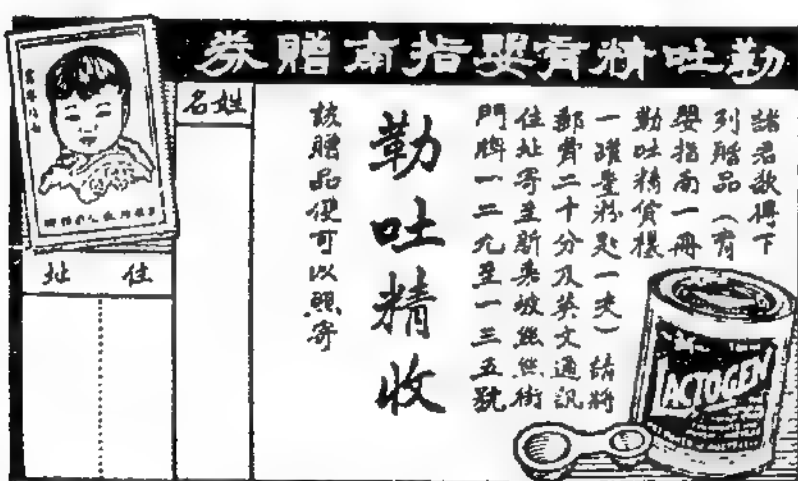 勒吐精育嬰指南贈券
諸君欲得下
列贈品（育
嬰指南一冊
勒吐精貨樣
一罐量粉匙一夾）請將
郵費二十分及英文通訊
住址寄至新嘉坡絲絲街
門牌一二九至一三五號
勒吐精收
該贈品便可以照寄
姓名
住址
LACTOGEN